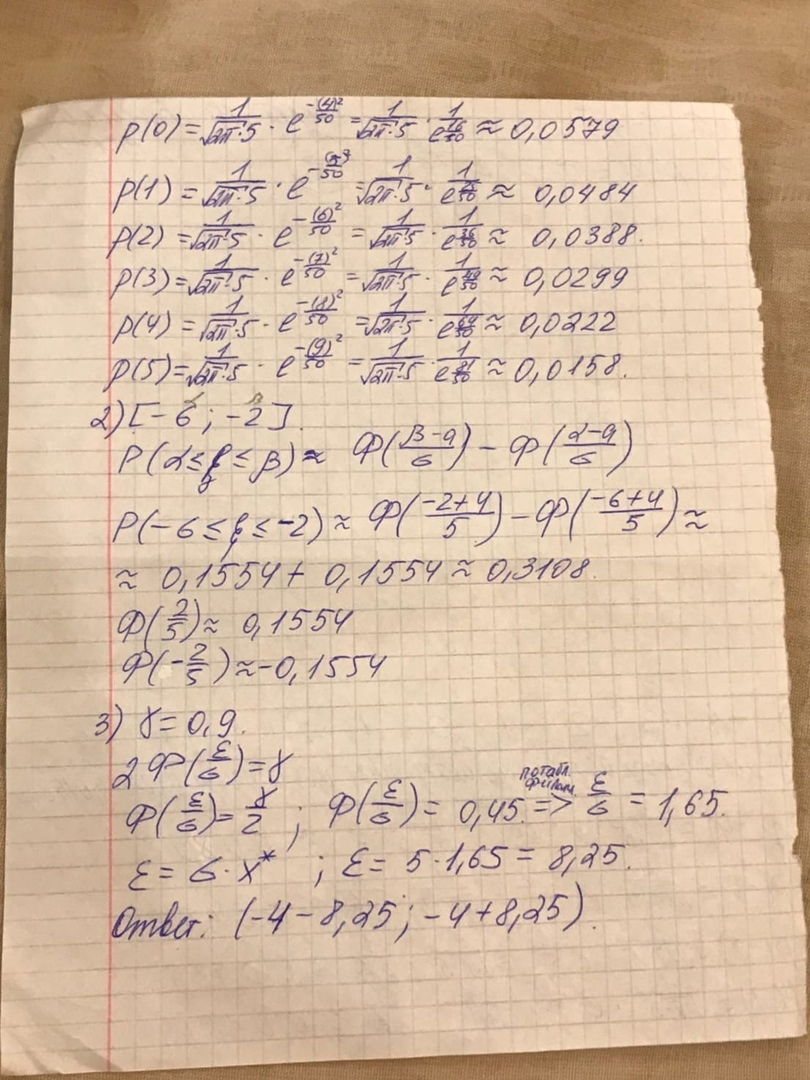 p(0) = 1/(√2π · 5) · e^(-(4)²/50) = 1/(√2π · 5) · 1/e^(16/50) ≈ 0,0579
p(1) = 1/(√2π · 5) · e^(-(5)²/50) = 1/(√2π · 5) · 1/e^(25/50) ≈ 0,0484
p(2) = 1/(√2π · 5) · e^(-(6)²/50) = 1/(√2π · 5) · 1/e^(36/50) ≈ 0,0388.
p(3) = 1/(√2π · 5) · e^(-(7)²/50) = 1/(√2π · 5) · 1/e^(49/50) ≈ 0,0299
p(4) = 1/(√2π · 5) · e^(-(8)²/50) = 1/(√2π · 5) · 1/e^(64/50) ≈ 0,0222
p(5) = 1/(√2π · 5) · e^(-(9)²/50) = 1/(√2π · 5) · 1/e^(81/50) ≈ 0,0158.
2) [-6 ; -2].
P(α ≤ ξ ≤ β) ≈ Ф((β-a)/σ) - Ф((α-a)/σ)
P(-6 ≤ ξ ≤ -2) ≈ Ф((-2+4)/5) - Ф((-6+4)/5) ≈
≈ 0,1554 + 0,1554 ≈ 0,3108.
Ф(2/5) ≈ 0,1554
Ф(-2/5) ≈ -0,1554
3) γ = 0,9.
2Ф(ε/σ) = γ
Ф(ε/σ) = γ/2 ; Ф(ε/σ) = 0,45. => ε/σ = 1,65.
ε = σ · x* ; ε = 5 · 1,65 = 8,25.
Ответ: (-4 - 8,25 ; -4 + 8,25).